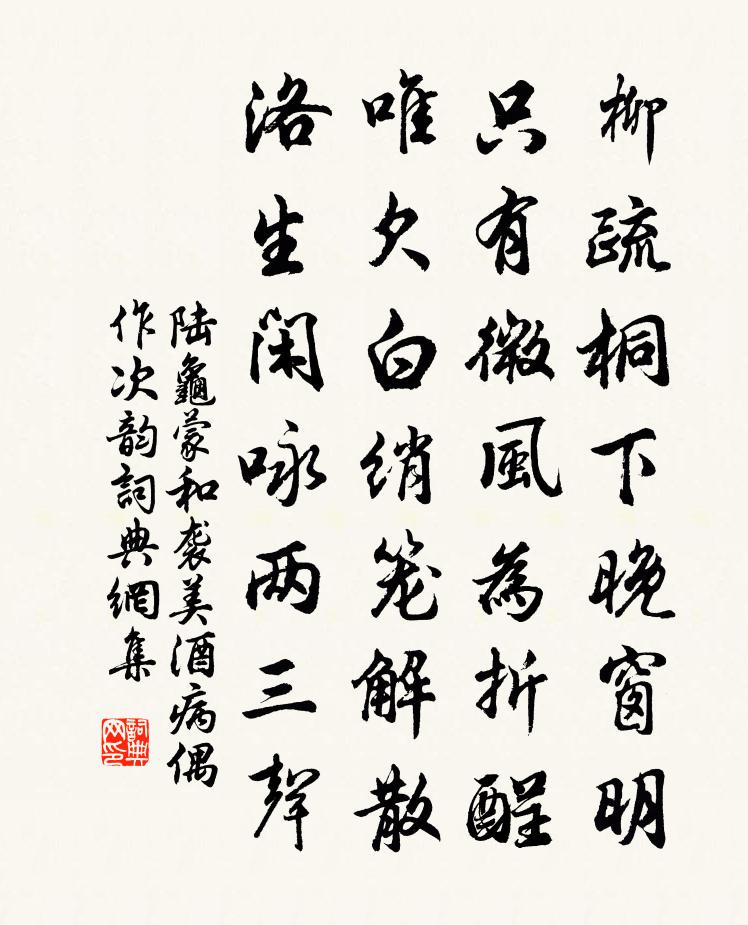 柳疏桐下晚窗明
只有微風為折醒
唯欠白綃笼解散
洛生闲咏两三聲
陆龜蒙和袭美酒病偶
作次韵詞典網集
詞典网印